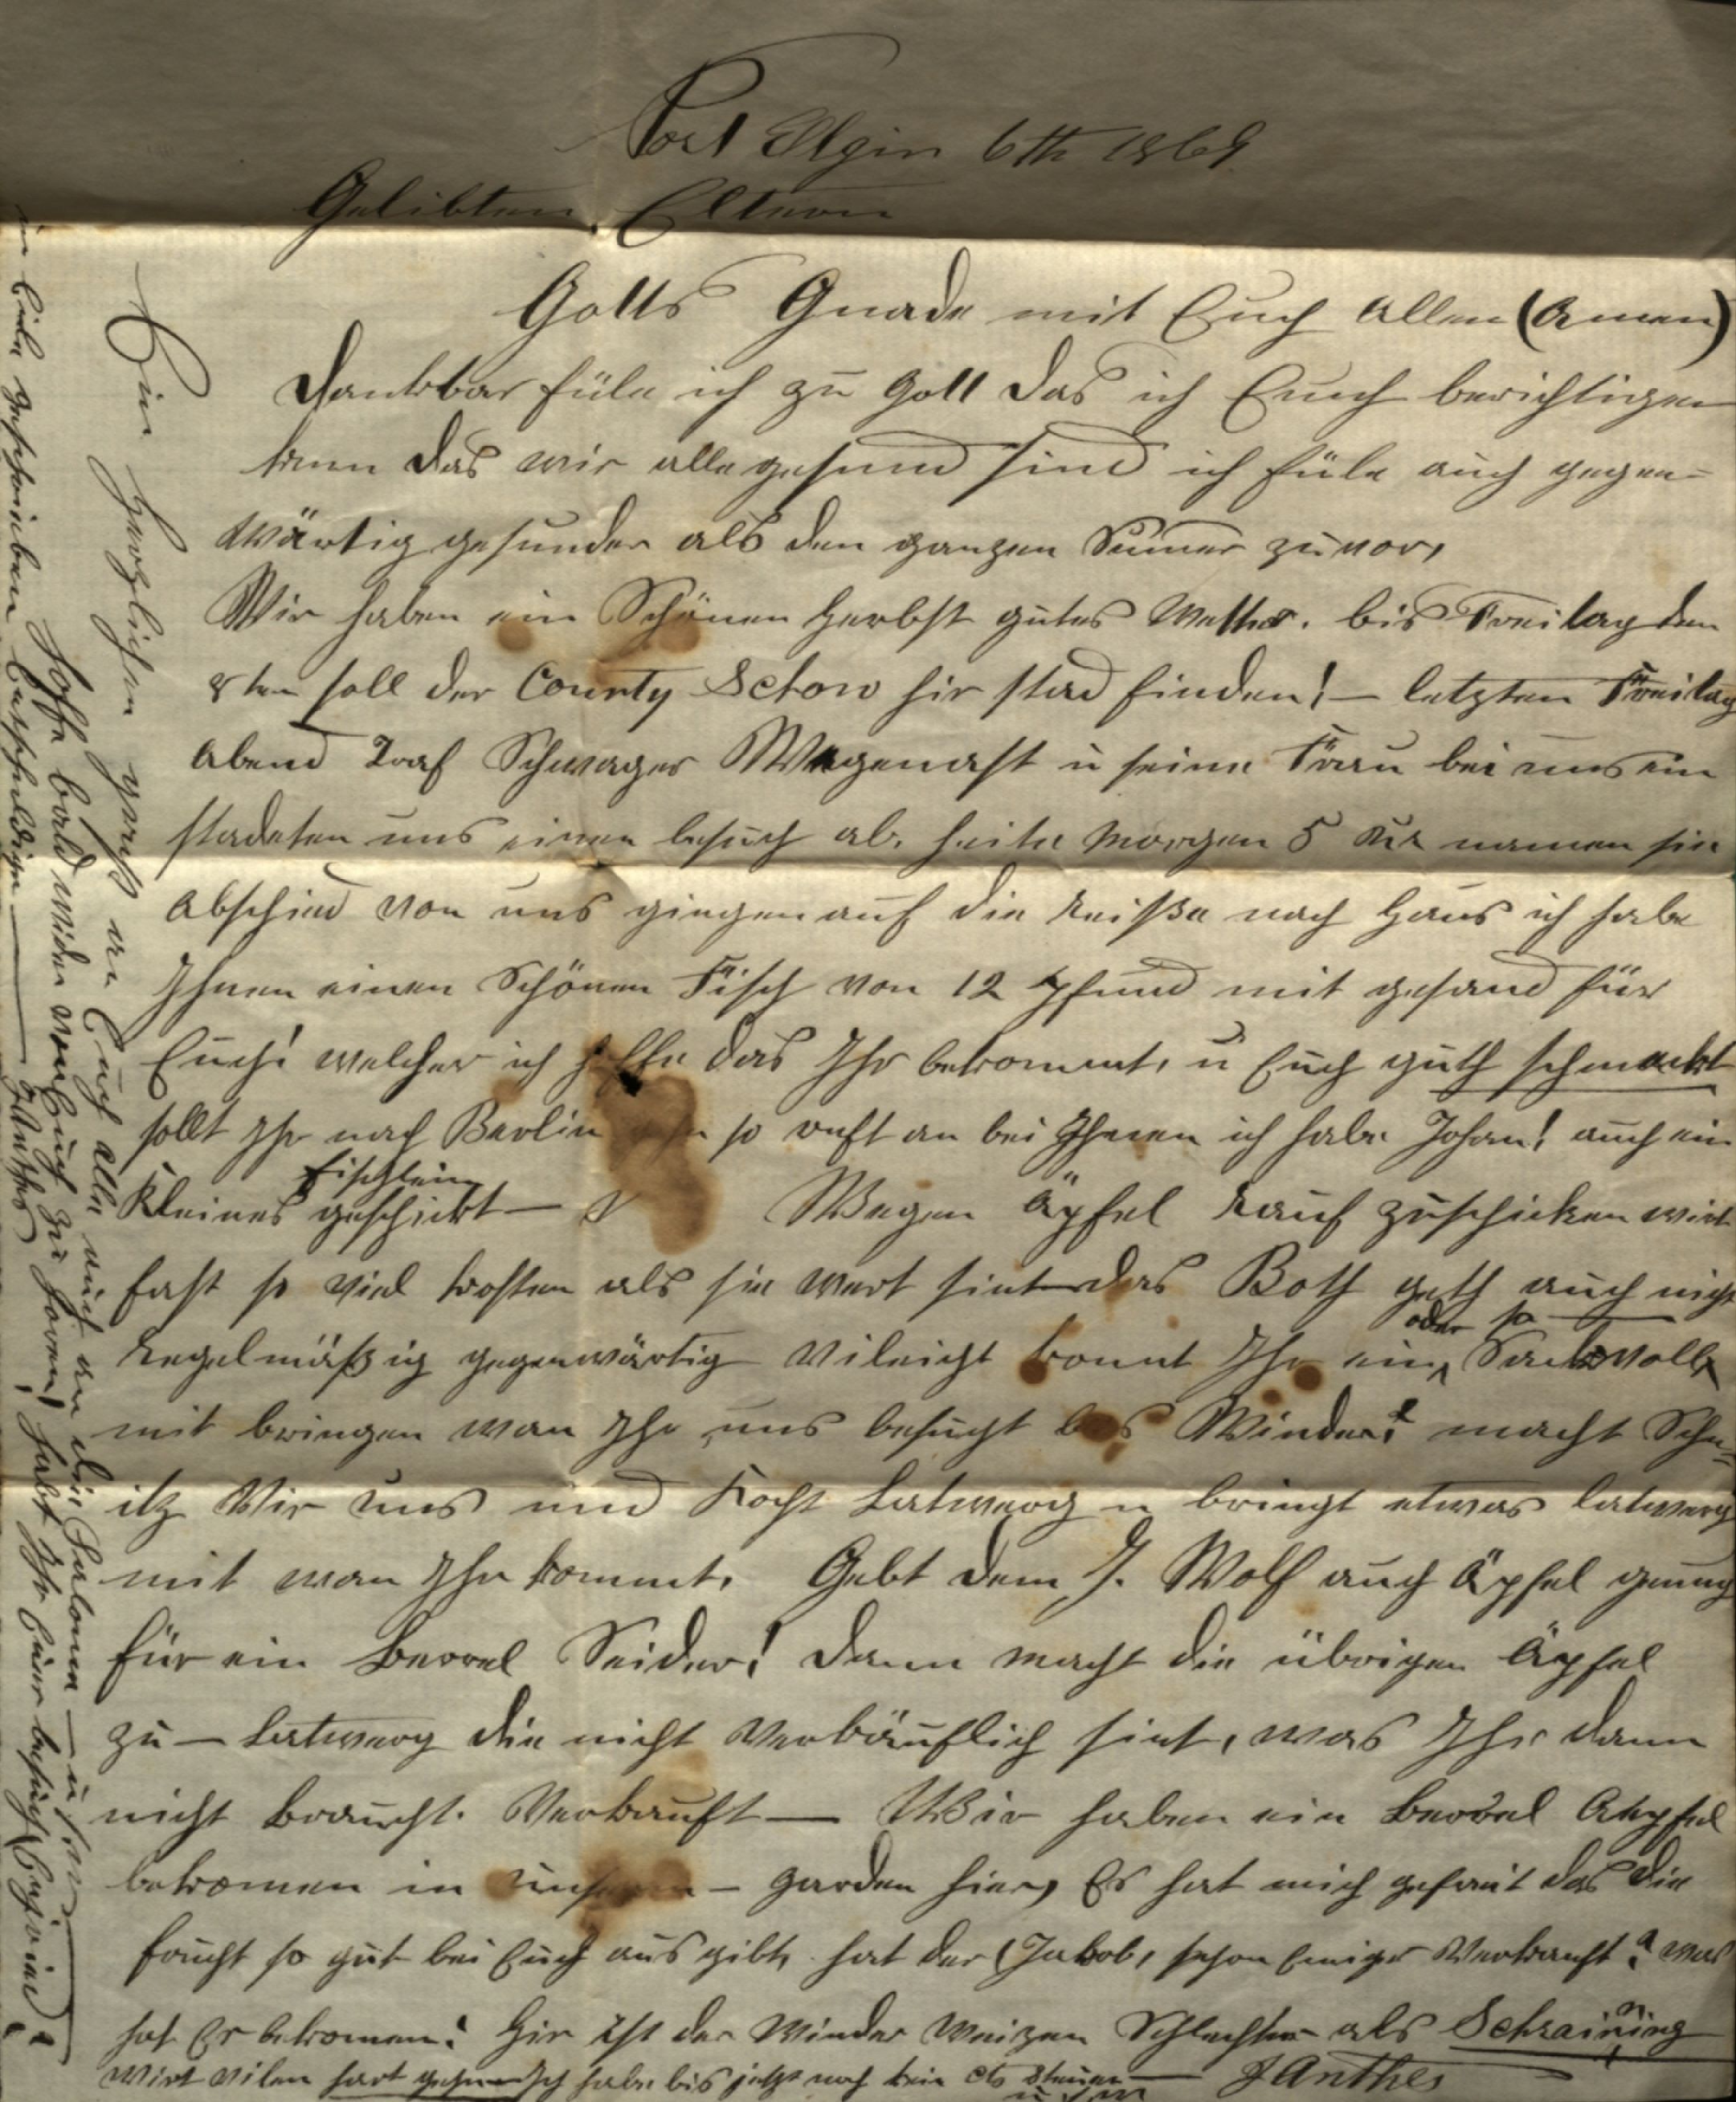 Port Elgin 6th 1869
Gelibten Eltern
Gotts Gnade mit Euch allen (Amen)
Dankbar füle ich zu Gott das ich Euch berichtigen
kann das wir alle gesund sind ich füle auch gegen=
wärtig gesunder als den ganzen Sumer zuvor,
Wir haben ein Schönen Herbst gutes Wether. bis Freitag den
8ten soll der County Schow hir stad finden! — letzten Freitag
Abend Traf Schwager Wagenast u seine Frau bei uns ein
stadeten uns einen besuch ab. heite Morgen 5 Uhr namen sie
Abschied von uns gingen auf die Reiße nach Haus ich habe
Ihnen einen Schönen Fisch von 12 Pfund mit gesand für
Euch! welcher ich hoffe das Ihr bekommt, u Euch guth schmeckt
sollt Ihr nach Berlin so ruft an bei Ihnen ich habe Johan! auch ein
Kleines Fischlein geschickt — Wegen Äpfel Rauf zuschicken wirt
fast so viel kosten als sie wert sint das Both geth auch nicht
Regelmäßig gegenwärtig vileicht kommt Ihr ein oder so Sackvoll
mit bringen wan Ihr uns besucht des Winder? macht Schn=
itz Vir uns und Kocht Latwerg u bringt etwas latwerg
mit wan Ihr kommt. Gebt dem J. Wolf auch Äpfel genug
für ein Berrel Seider! dann macht die übrigen Äpfel
zu — Latwerg die nicht verkäuflich sint, was Ihr dann
nicht braucht. Verkauft — Wir haben ein Berrel Aepfel
bekomen in unserem — garden hier, Es hat mich gefreit das die
frucht so gut bei Euch aus gibt, hat der (Jakob, schon Einiges Verkauft? was
hat Er bekomen? Hir ist der Winder Weizen Schlechter als Schraining
wirt vilen hart gehen Ich habe bis jetzt noch kein cts Steuer — J Anthes
Ein herzlichen gruß an Euch alle auch an die Salome — u
Hoffe bald wider von Euch zu hören, habt Ihr Euer besuch
in Eile geschrieben Entschuldige — J Anthes